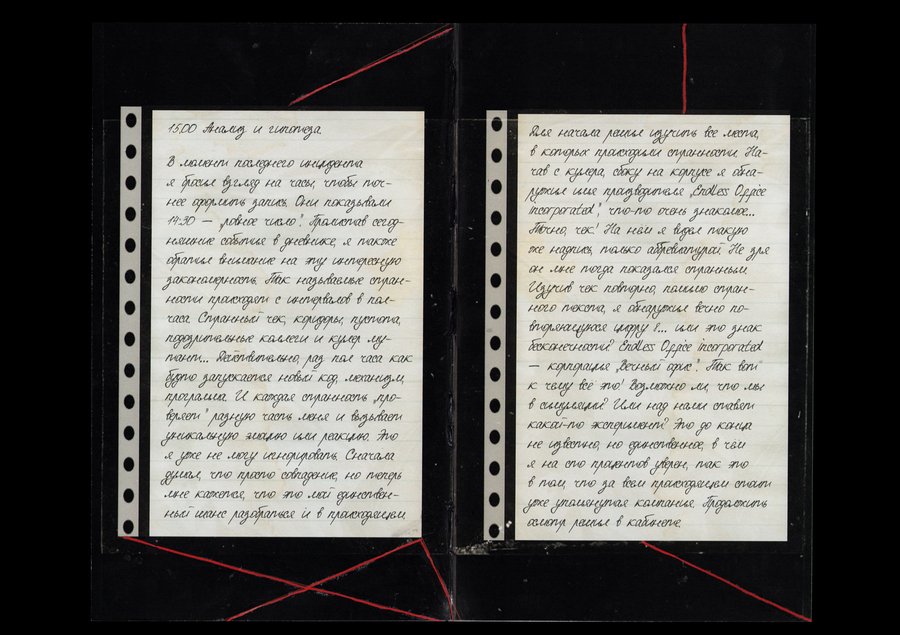 15:00 Анализ и гипотеза
В момент последнего инцидента
я бросил взгляд на часы, чтобы точ-
нее оформить запись. Они показывали
14:30 — „ровное число". Пролистав сегод-
няшние события в дневнике, я также
обратил внимание на эту интересную
закономерность. Так называемые стран-
ности происходят с интервалов в пол-
часа. Странный чек, коридоры, пустота,
подозрительные коллеги и кулер му-
тант... Действительно, раз пол часа как
будто запускается новый код, механизм,
программа. И каждая странность „про-
веряет" разную часть меня и вызывает
уникальную эмоцию или реакцию. Это
я уже не могу игнорировать. Сначала
думал, что просто совпадение, но теперь
мне кажется, что это мой единствен-
ный шанс разобраться и в происходящем.
Для начала решил изучить все места,
в которых происходили странности. На-
чав с кулера, сбоку на корпусе я обна-
ружил имя производителя „Endless Office
incorporated", что-то очень знакомое...
Точно, чек! На нем я видел такую
же надпись, только аббревиатурой. Не зря
он мне тогда показался странным.
Изучив чек повторно, помимо стран-
ного текста, я обнаружил вечно по-
вторяющуюся цифру 8... или это знак
бесконечности? Endless Office incorporated
— корпорация „Вечный офис". Так вот
к чему всё это! Возможно ли, что мы
в симуляции? Или над нами ставят
какой-то эксперимент? Это до конца
не известно, но единственное, в чем
я на сто процентов уверен, так это
в том, что за всем происходящем стоит
уже упомянутая компания. Продолжить
осмотр решил в кабинете.